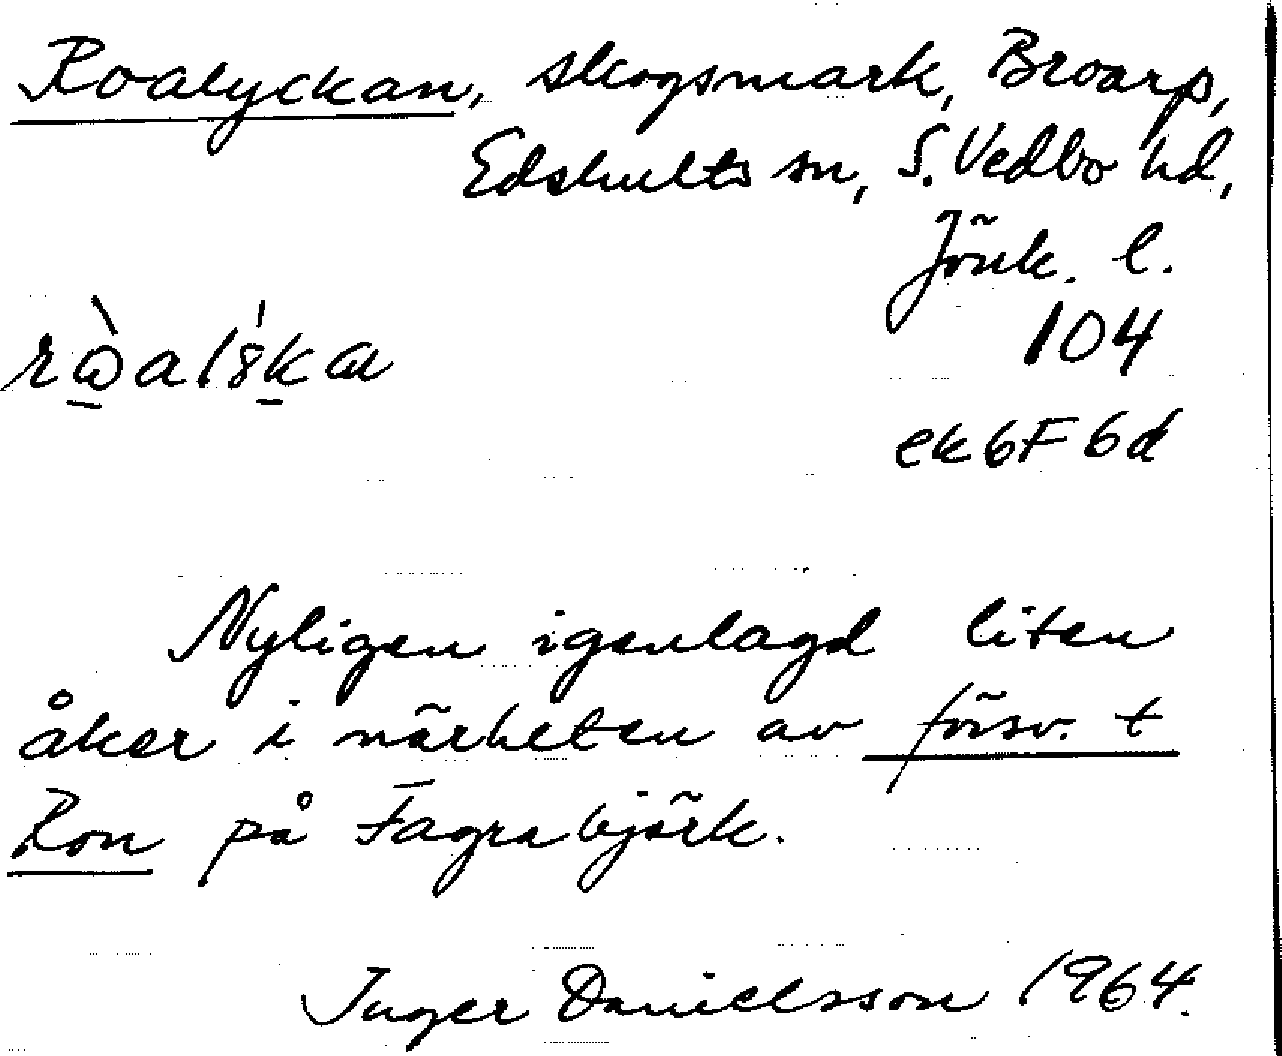 Roalyckan, skogsmark, Broarp,
Edshults sn, S. Vedbo hd,
Jönk. l.
104
ek6F6d
Nyligen igenlagd liten
åker i närheten av försv. t
Ron på Fagrabjörk.
Inger Danielsson 1964.